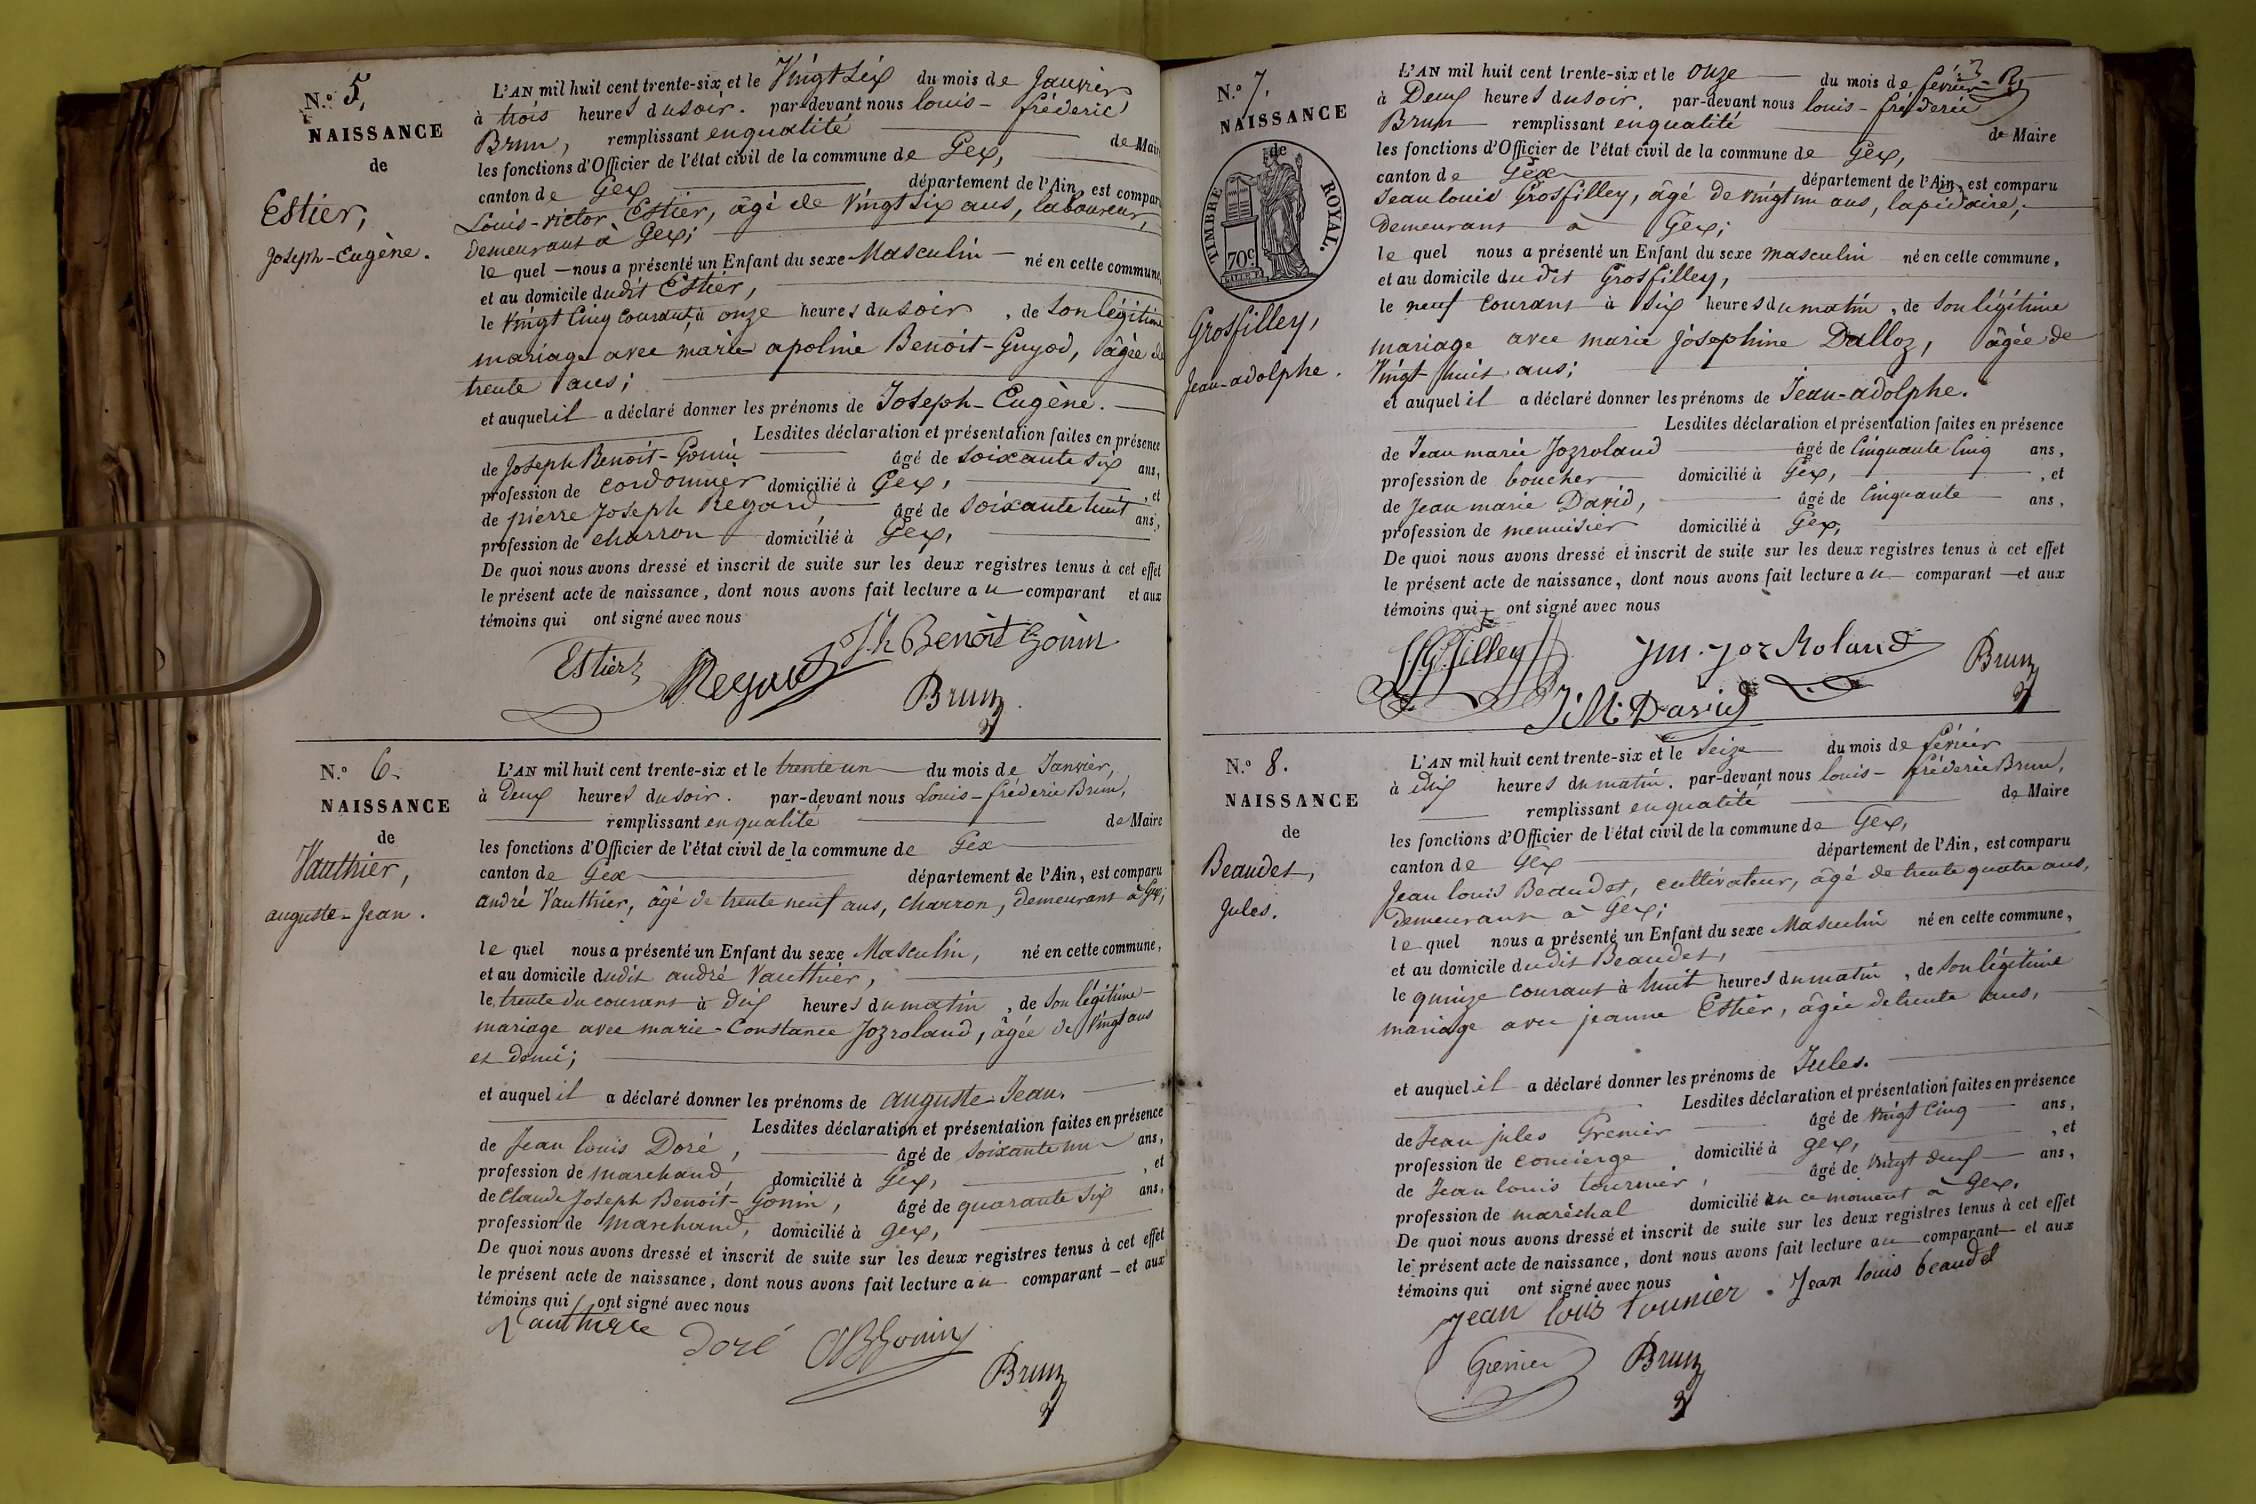 N.o 5,
NAISSANCE
de
Estier,
Joseph-Eugène.
L'AN mil huit cent trente-six et le Vingt Six du mois de Janvier
à trois heures du soir. par-devant nous louis- fréderic
Brun, remplissant en qualité de Maire
les fonctions d'Officier de l'état civil de la commune de Gex,
canton de Gex département de l'Ain, est comparu
Louis-victor Estier, âgé de Vingt Six ans, laboureur,
demeurant à Gex;
le quel nous a présenté un Enfant du sexe Masculin né en cette commune,
et au domicile dudit Estier,
le Vingt Cinq courant, à onze heures du soir, de son légitime
mariage avec marie apoline Benoit-Guyod, âgée de
trente ans;
et auquel il a déclaré donner les prénoms de Joseph-Eugène.
Lesdites déclaration et présentation faites en présence
de Joseph Benoit-Gonin âgé de soixante six ans,
profession de cordonnier domicilié à Gex, , et
de pierre Joseph Regard, âgé de soixante huit ans,
profession de charron domicilié à Gex,
De quoi nous avons dressé et inscrit de suite sur les deux registres tenus à cet effet
le présent acte de naissance, dont nous avons fait lecture au comparant et aux
témoins qui ont signé avec nous
Estier Regard Jh Benoit Gonin
Brun
N.o 6.
NAISSANCE
de
Vauthier,
auguste-Jean.
L'AN mil huit cent trente-six et le trente un du mois de Janvier,
à Deux heures du soir. par-devant nous Louis-fréderic Brun,
remplissant en qualité de Maire
les fonctions d'Officier de l'état civil de la commune de Gex
canton de Gex département de l'Ain, est comparu
andré Vauthier, âgé de trente neuf ans, charron, demeurant à Gex;
le quel nous a présenté un Enfant du sexe Masculin, né en cette commune,
et au domicile dudit andré Vauthier,
le trente du courant à dix heures du matin, de son légitime
mariage avec marie-Constance Jozroland, âgée de Vingt ans
et demi;
et auquel il a déclaré donner les prénoms de auguste-Jean.
Lesdites déclaration et présentation faites en présence
de Jean louis Doré, âgé de soixante un ans,
profession de marchand, domicilié à Gex, , et
de Claude Joseph Benoit-Gonin, âgé de quarante six ans,
profession de marchand, domicilié à gex,
De quoi nous avons dressé et inscrit de suite sur les deux registres tenus à cet effet
le présent acte de naissance, dont nous avons fait lecture au comparant et aux
témoins qui ont signé avec nous
Doré
Brun
N.o 7.
NAISSANCE
de
TIMBRE ROYAL.
70c
Grosfilley,
Jean-adolphe.
3
L'AN mil huit cent trente-six et le onze du mois de février
à Deux heures du soir. par-devant nous louis-fréderic
Brun remplissant en qualité de Maire
les fonctions d'Officier de l'état civil de la commune de Gex,
canton de Gex département de l'Ain, est comparu
Jean louis Grosfilley, âgé de vingt un ans, lapidaire,
demeurant à Gex;
le quel nous a présenté un Enfant du sexe masculin né en cette commune,
et au domicile dudit Grosfilley,
le neuf courant à six heures du matin, de son légitime
mariage avec marie josephine Dalloz, âgée de
Vingt huit ans;
et auquel il a déclaré donner les prénoms de Jean-adolphe.
Lesdites déclaration et présentation faites en présence
de Jean marie Jozroland âgé de Cinquante Cinq ans,
profession de boucher domicilié à Gex, , et
de Jean marie David, âgé de Cinquante ans,
profession de menuisier domicilié à Gex,
De quoi nous avons dressé et inscrit de suite sur les deux registres tenus à cet effet
le présent acte de naissance, dont nous avons fait lecture au comparant et aux
témoins qui ont signé avec nous
jm. joz Roland Brun
J. M. David
N.o 8.
NAISSANCE
de
Beaudet,
Jules.
L'AN mil huit cent trente-six et le seize du mois de février
à dix heures du matin. par-devant nous louis-fréderic Brun,
remplissant en qualité de Maire
les fonctions d'Officier de l'état civil de la commune de Gex,
canton de Gex département de l'Ain, est comparu
Jean louis Beaudet, cultivateur, âgé de trente quatre ans,
demeurant à Gex;
le quel nous a présenté un Enfant du sexe Masculin né en cette commune,
et au domicile dudit Beaudet,
le quinze courant à huit heures du matin, de son légitime
mariage avec jeanne Estier, âgée de trente ans,
et auquel il a déclaré donner les prénoms de Jules.
Lesdites déclaration et présentation faites en présence
de Jean jules Grenier âgé de vingt Cinq ans,
profession de concierge domicilié à gex, , et
de Jean louis tournier, âgé de vingt deux ans,
profession de maréchal domicilié en ce moment à Gex.
De quoi nous avons dressé et inscrit de suite sur les deux registres tenus à cet effet
le présent acte de naissance, dont nous avons fait lecture au comparant et aux
témoins qui ont signé avec nous
jean louis tournier. Jean louis beaudet
Grenier Brun